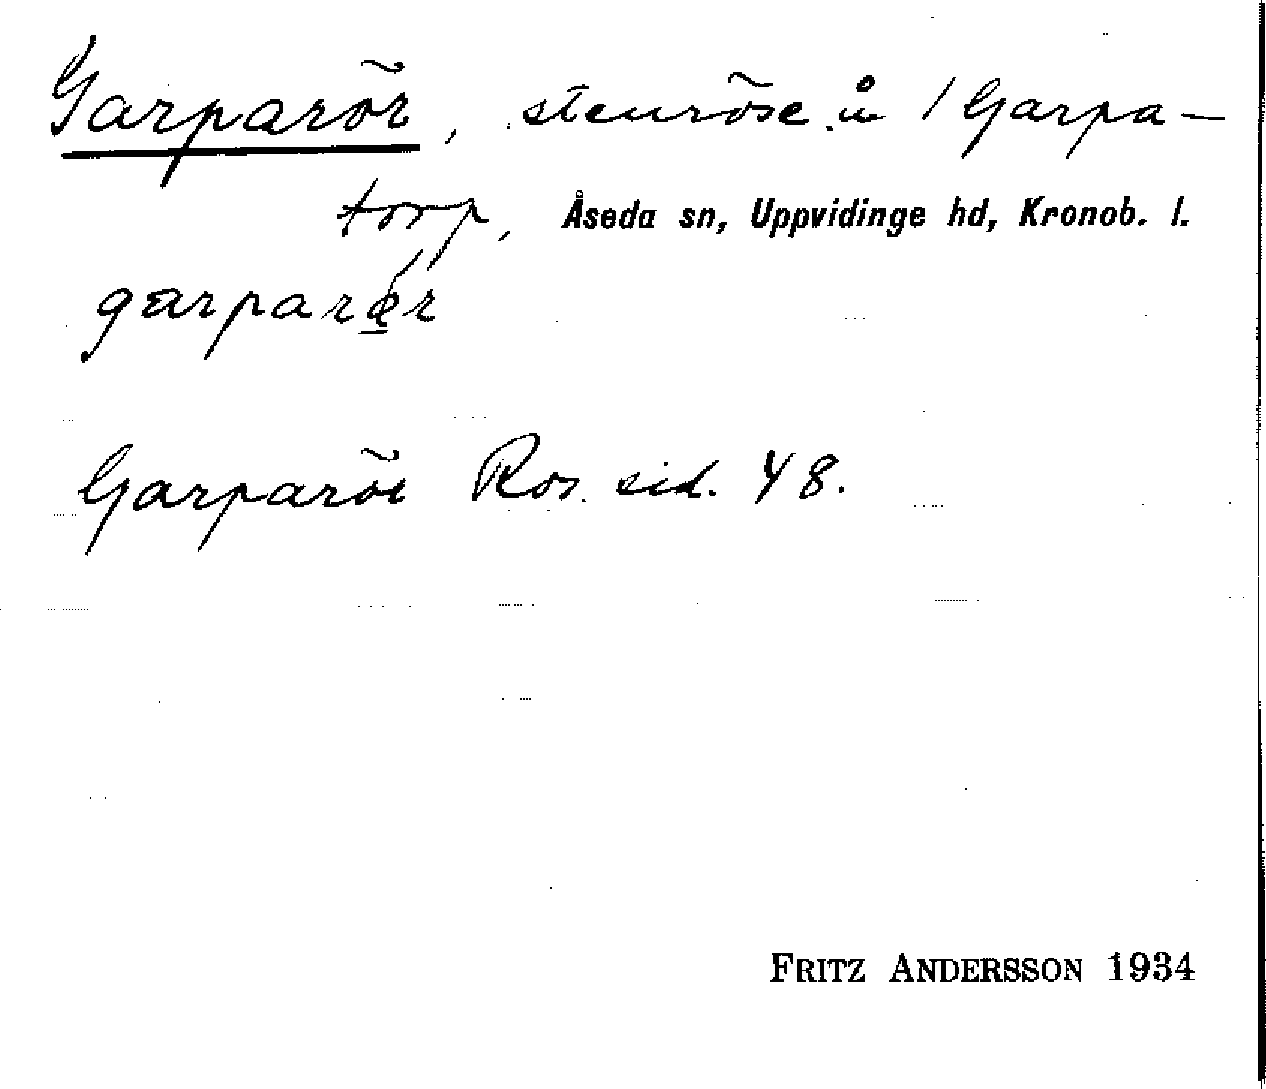 Garparör, stenröse å 1 Garpa-
torp, Åseda sn, Uppvidinge hd, Kronob. l.
garpar
Garparör Ros. sid. 48.
FRITZ ANDERSSON 1934